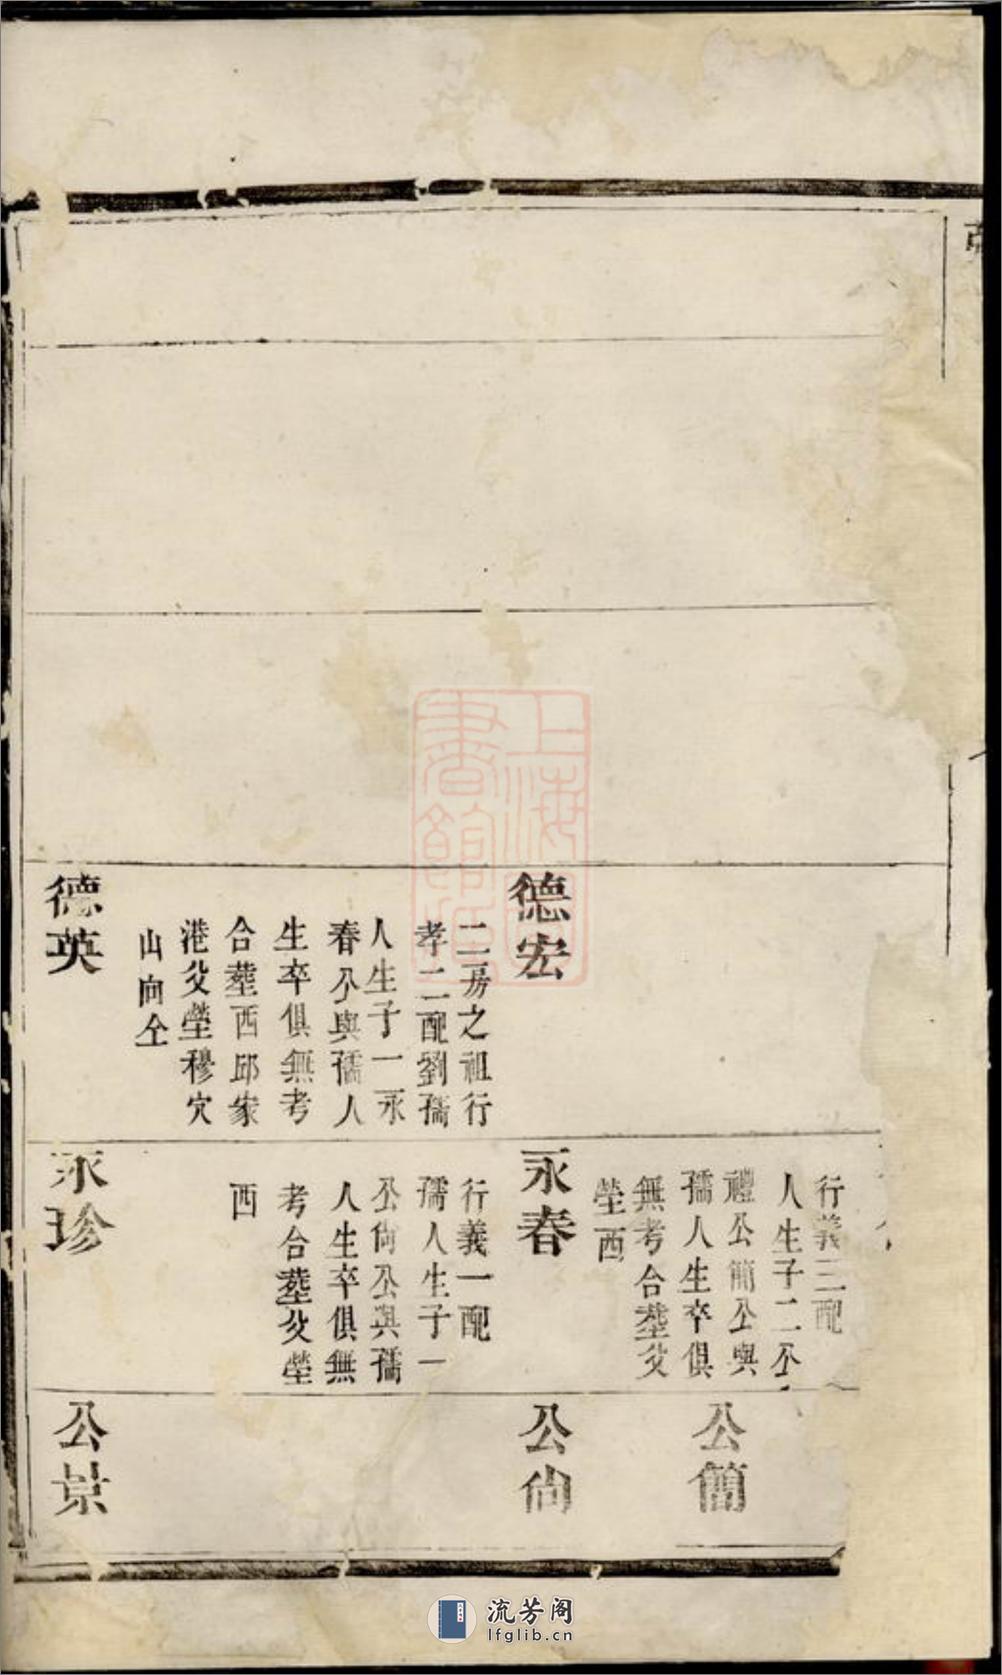 德宏
二房之祖行
孝二配劉孺
人生子一永
春公與孺人
生卒俱無考
合塟西邱家
港父塋穆穴
山向仝
德英
行義三配
人生子二公
禮公簡公與
孺人生卒俱
無考合塟父
塋西
永春
行義一配
孺人生子一
公尙公與孺
人生卒俱無
考合塟父塋
西
永珍
公簡
公尙
公景
上海
書館
流芳阁
lfglib.cn